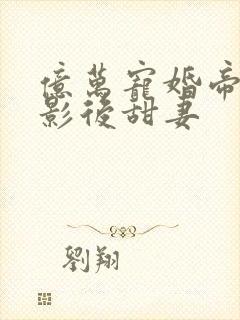 億萬寵婚帝
影後甜妻
劉翔